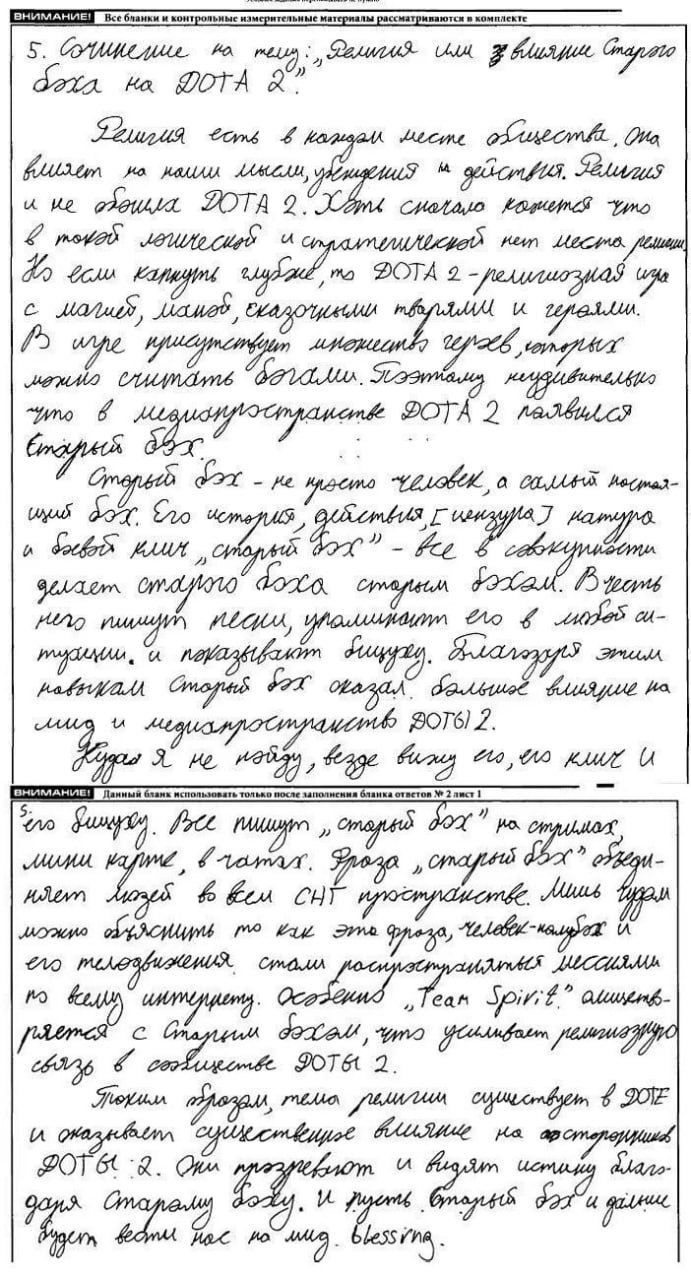 ВНИМАНИЕ! Все бланки и контрольные измерительные материалы рассматриваются в комплекте
5. Сочинение на тему: „Религия или влияние Старого
бэха на DOTA 2."
Религия есть в каждом месте общества. Она
влияет на наши мысли, убеждения и действия. Религия
и не обошла DOTA 2. Хоть сначала кажется что
в такой логической и стратегической нет места религии.
Но если капнуть глубже, то DOTA 2 - религиозная игра
с магией, маной, сказочными тварями и героями.
В игре присутствует множество героев, которых
можно считать богами. Поэтому неудивительно
что в медиапространстве DOTA 2 появился
Старый бэх.
Старый бэх - не просто человек, а самый настоя-
щий бэх. Его история, действия, [цензура] натура
и боевой клич „старый бэх" - все в совокупности
делает старого бэха старым бэхэм. В честь
него пишут песни, упоминают его в любой си-
туации. и показывают бицуху. Благодаря этим
навыкам Старый бэх оказал большое влияние на
мид и медиапространство DOTЫ 2.
Куда я не пойду, везде вижу его, его клич и
ВНИМАНИЕ! Данный бланк использовать только после заполнения бланка ответов № 2 лист 1
5.
его бицуху. Все пишут „старый бэх" на стримах,
мини карте, в чатах. Фраза „старый бэх" объеди-
няет людей во всем СНГ пространстве. Лишь чудом
можно объяснить то как эта фраза, человек-полубэх и
его телодвижения стали распространяться мессиями
по всему интернету. Особенно „Team Spirit" олицетво-
ряется с Старым бэхэм, что усиливает религиозную
связь в сообществе DOTЫ 2.
Таким образом, тема религии существует в DOTE
и оказывает существенное влияние на сторонников
DOTЫ 2. Они прозревают и видят истину благо-
даря Старому бэху. И пусть Старый бэх и дальше
будет вести нас на мид. blessing.